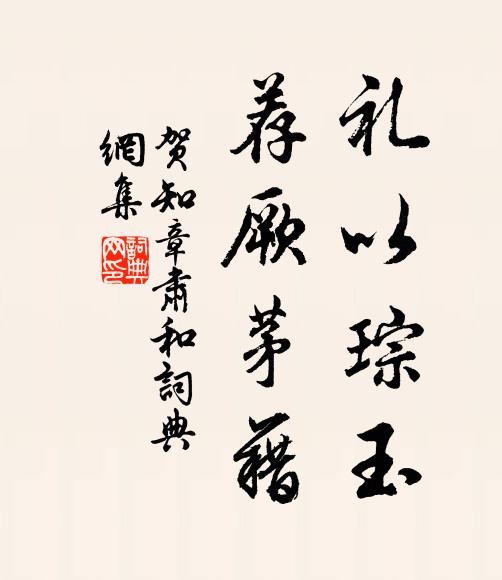 礼以琮玉
荐厥茅藉
贺知章肃和詞典
網集
詞典网印